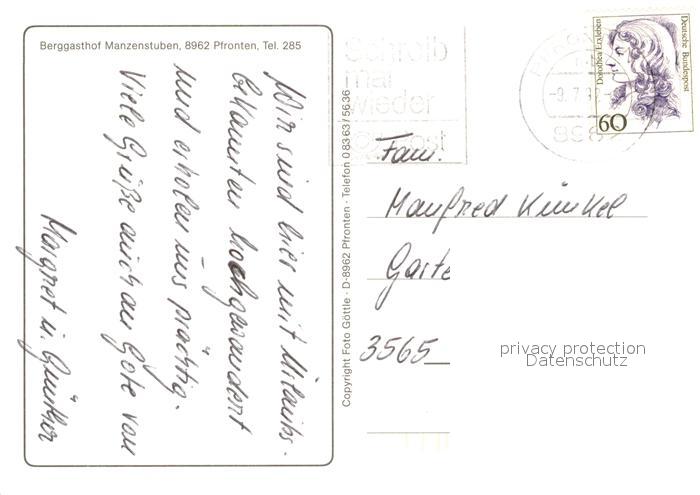 Berggasthof Manzenstuben, 8962 Pfronten, Tel. 285
Wir sind hier mit Urlaubs-
bekannten hochgewandert
und erholen uns prächtig.
Viele Grüße auch an Gote von
Margret u. Günther
Copyright Foto Göttle · D-8962 Pfronten · Telefon 0 83 63 / 56 36
Schreib
mal
wieder
Post
-9.7.9
898
Dorothea Erxleben
Deutsche Bundespost
60
Fam.
Manfred Künkel
Garte
3565
privacy protection
Datenschutz